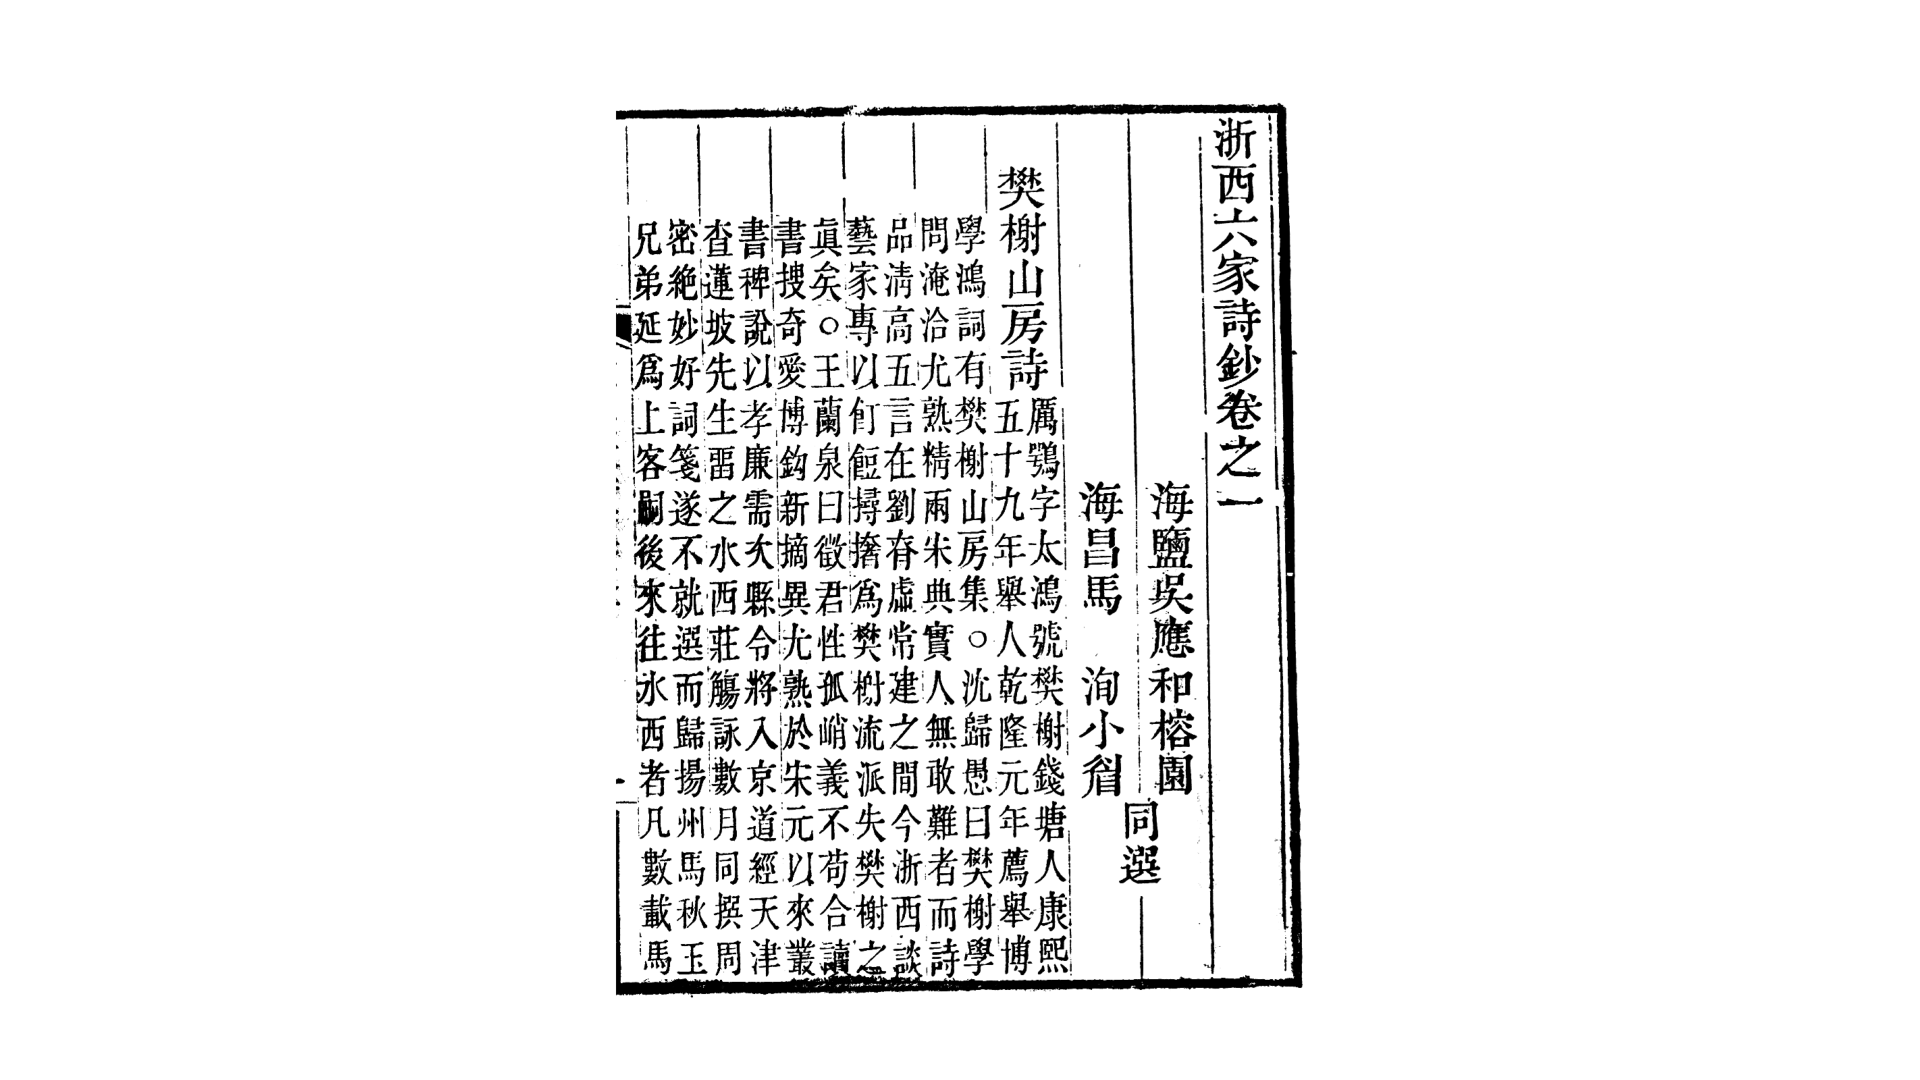 浙西六家詩鈔卷之一
海鹽吳應和榕園
海昌馬　洵小眉
同選
樊榭山房詩
厲鶚字太鴻號樊榭錢塘人康熙
五十九年舉人乾隆元年薦舉博
學鴻詞有樊榭山房集○沈歸愚曰樊榭學
問淹洽尤熟精兩宋典實人無敢難者而詩
品淸高五言在劉眘虛常建之間今浙西談
藝家專以飣餖撏撦爲樊榭流派失樊榭之
眞矣○王蘭泉曰徵君性孤峭義不苟合讀
書搜奇愛博鈎新摘異尤熟於宋元以來叢
書稗說以孝廉需次縣令將入京道經天津
查蓮坡先生畱之水西莊觴詠數月同撰周
密絶妙好詞箋遂不就選而歸揚州馬秋玉
兄弟延爲上客嗣後來往水西者凡數載馬